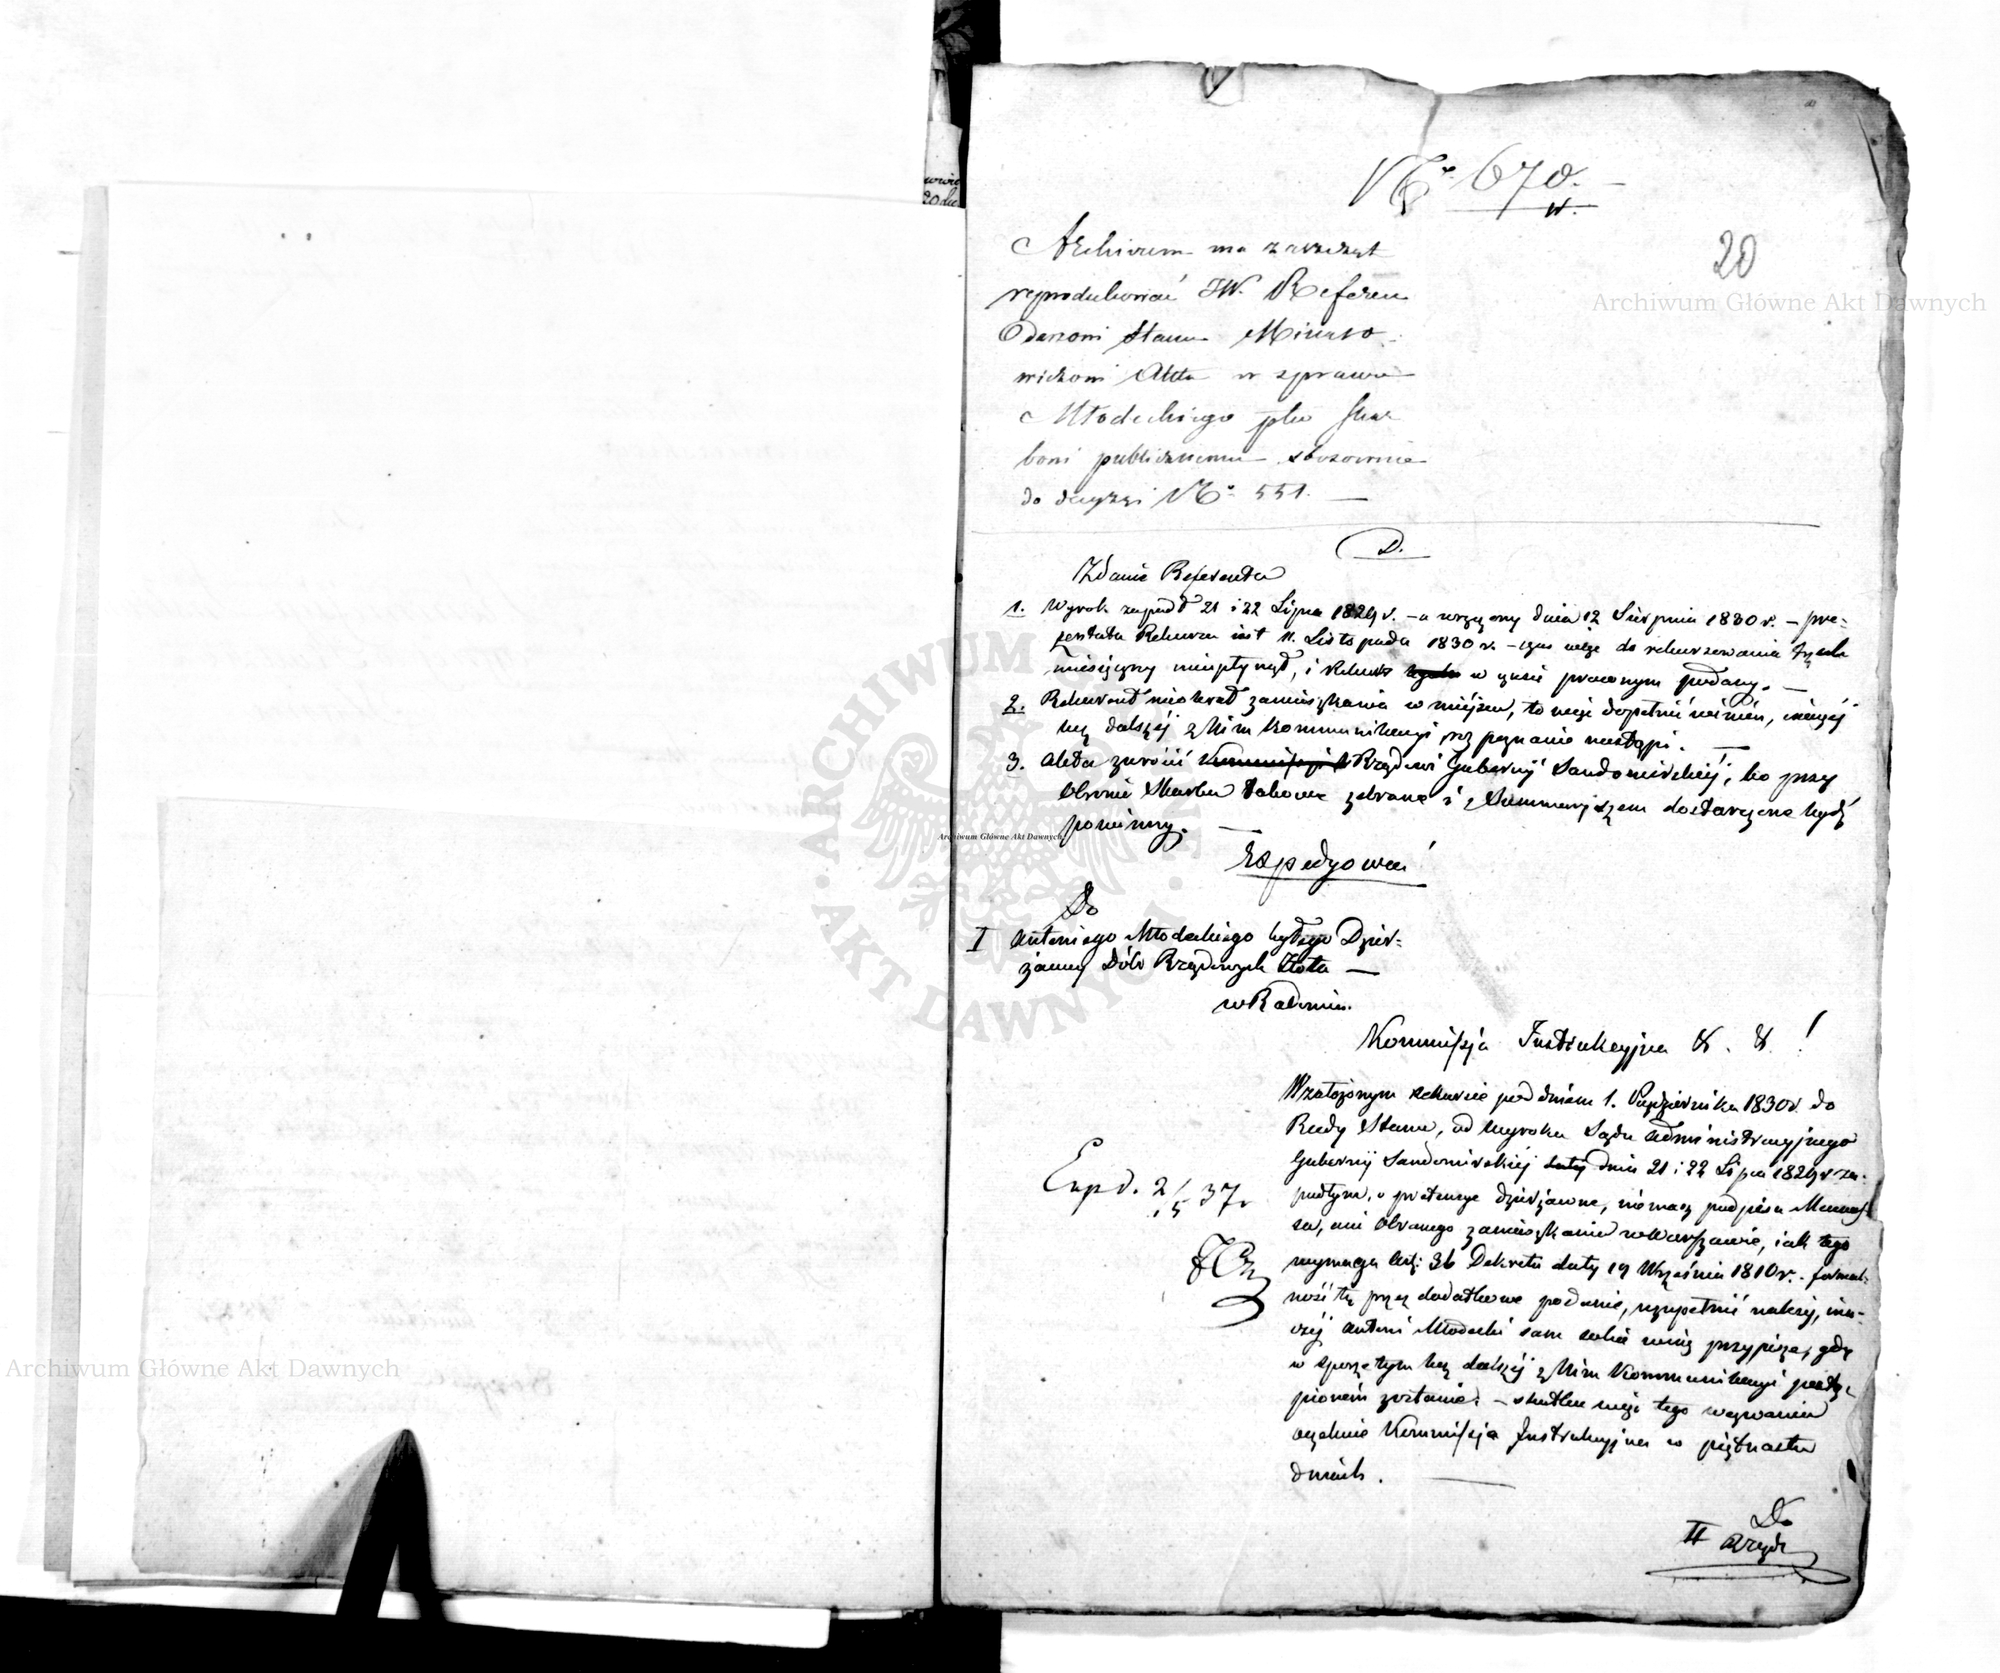 No 670.
W.
20
Archiwum ma zaraz akt
reprodukować JW. Referen
darzowi Stanu
wiczowi Akta w sprawie
Młodeckiego pko Skar
bowi publicznemu stosownie
do decyzji No 551. —
D.
Zdanie Referenta
1. Wyrok zapadł 21 i 22 Lipca 1829 r. – a wręczony dnia 12 Sierpnia 1830 r. – pre=
zentata Rekursu jest 11. Listopada 1830 r. – czas więc do rekursowania
miesięczny nieupłynął, i Rekurs w czasie prawnym podany. —
2. Rekurent nieobrał zamieszkania w miejscu, to więc dopełnić winien, inaczej
bez dalszéj z Nim kommunikacyi nastąpi. —
3. Akta zwrócić Rządowi Gubernij Sandomirskiéj, bo przy
obronie Skarbu takowe zebrane i z Summaryuszem dostarczone bydź
powinny. —
Expedyować
Do
I Antoniego Młodeckiego byłego Dzier=
żawcy Dóbr Rządowych Złota —
w Radomiu.
Kommissja Instrukcyjna & . & . !
W założonym rekursie pod dniem 1. Października 1830 r. do
Rady Stanu, od wyroku Sądu Administracyjnego
Gubernij Sandomirskiéj dnia 21 i 22 Lipca 1829 r. za=
padłym, o pretensye dzierżawne, niemasz podpisu Mecenas
sa, ani obranego zamieszkania w Warszawie, jak tego
wymaga Art: 36 Dekretu daty 19 Września 1810 r. formal=
ność tę przez dodatkowe podanie, uzupełnić należy, ina=
czéj Antoni Młodecki sam sobie winę przypisze, gdy
w sporze tym bez dalszéj z Nim Kommunikacyi
zostanie. – skutku więc tego wezwania
oczekuie Kommissja Instrukcyjna w piętnastu
dniach. —
Exp d. 2/15 37 r
Do
II Rządu
Archiwum Główne Akt Dawnych
Archiwum Główne Akt Dawnych
Archiwum Główne Akt Dawnych
ARCHIWUM GŁÓWNE AKT DAWNYCH